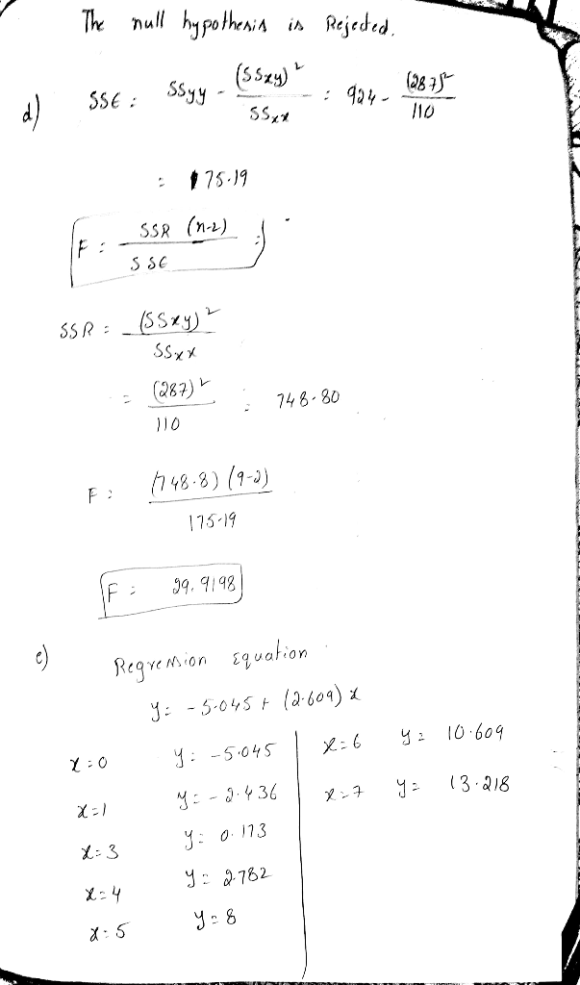 The null hypothesis is Rejected.
d) SSE : SSyy - (SSxy)² / SSxx : 924 - (287)² / 110
: 175.19
F : SSR (n-2) / SSE :)
SSR : (SSxy)² / SSxx
= (287)² / 110 : 748.80
F : (748.8) (9-2) / 175.19
F : 29.9198
e) Regression Equation
y: -5.045 + (2.609) x
x:0 y: -5.045
x=1 y: -2.436
x=3 y: 0.173
x=4 y: 2.782
x:5 y=8
x=6 y= 10.609
x=7 y= 13.218